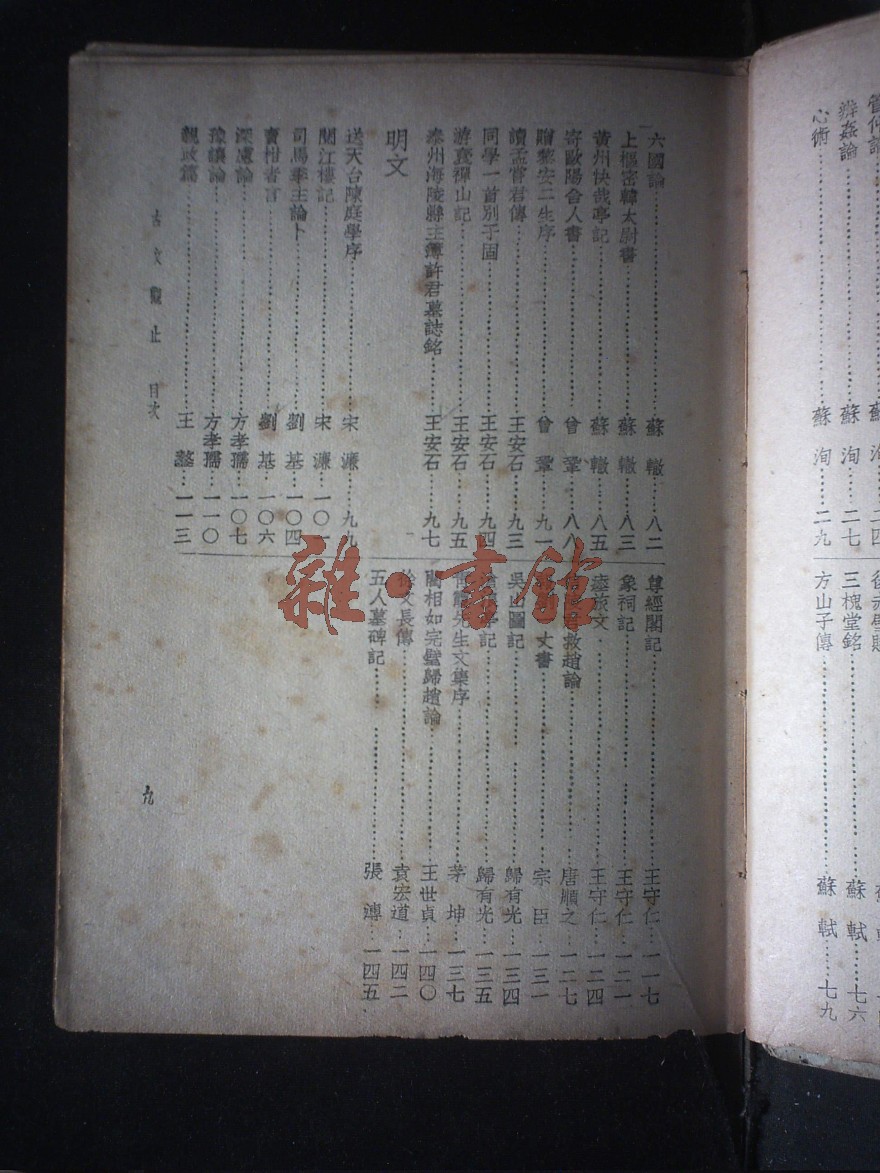 管仲論
辨姦論……蘇洵…二七
心術……蘇洵…二九
三槐堂銘……蘇軾…七六
方山子傳……蘇軾…七九
六國論……蘇轍…八二
上樞密韓太尉書……蘇轍…八三
黃州快哉亭記……蘇轍…八五
寄歐陽舍人書……曾鞏…八八
贈黎安二生序……曾鞏…九一
讀孟嘗君傳……王安石…九三
同學一首別子固……王安石…九四
游褒禪山記……王安石…九五
泰州海陵縣主簿許君墓誌銘……王安石…九七
明文
送天台陳庭學序……宋濂…九九
閱江樓記……宋濂…一〇一
司馬季主論卜……劉基…一〇四
賣柑者言……劉基…一〇六
深慮論……方孝孺…一〇七
豫讓論……方孝孺…一一〇
親政篇……王鏊…一一三
尊經閣記……王守仁…一一七
象祠記……王守仁…一二一
瘞旅文……王守仁…一二四
救趙論……唐順之…一二七
丈書……宗臣…一三一
吳山圖記……歸有光…一三四
亭記……歸有光…一三五
先生文集序……茅坤…一三七
藺相如完璧歸趙論……王世貞…一四〇
徐文長傳……袁宏道…一四二
五人墓碑記……張溥…一四五
古文觀止 目次
九
雜·書館